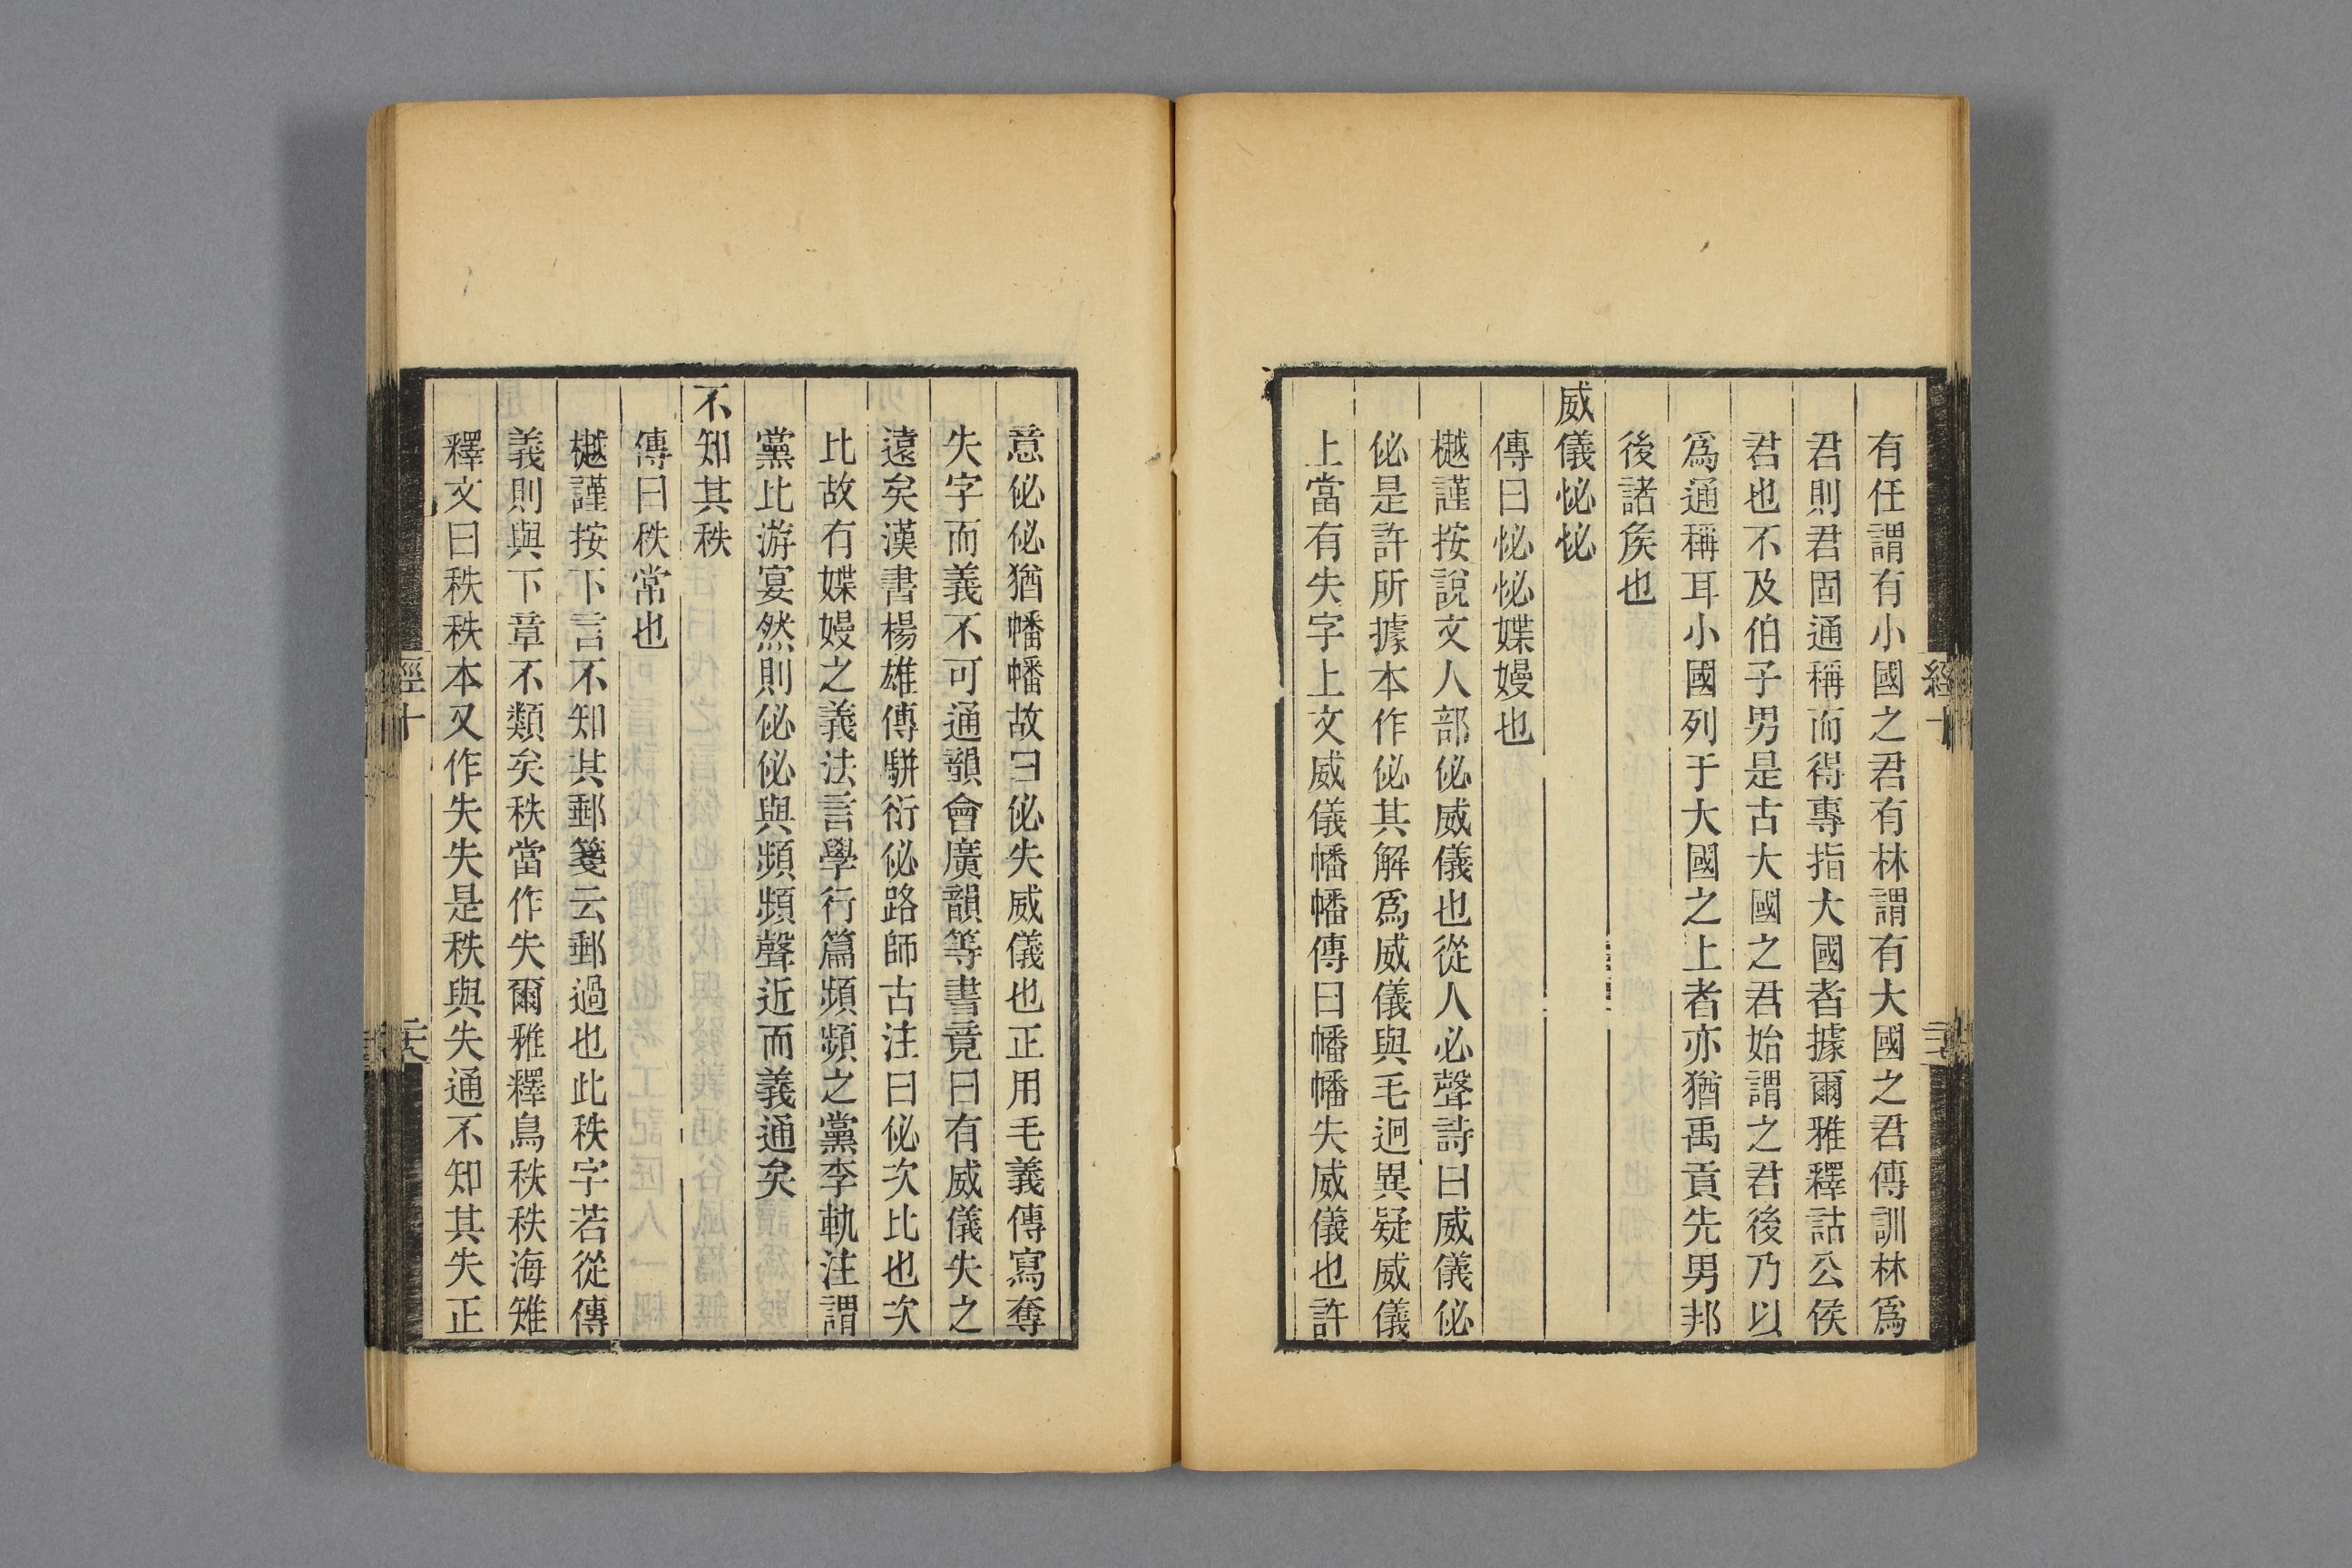 有任謂有小國之君有林謂有大國之君傳訓林爲
君則君固通稱而得專指大國者據爾雅釋詁公侯
君也不及伯子男是古大國之君始謂之君後乃以
爲通稱耳小國列于大國之上者亦猶禹貢先男邦
後諸矦也
威儀怭怭
傳曰怭怭媟嫚也
樾謹按說文人部佖威儀也從人必聲詩曰威儀佖
佖是許所據本作佖其解爲威儀與毛迥異疑威儀
上當有失字上文威儀幡幡傳曰幡幡失威儀也許
意佖佖猶幡幡故曰佖失威儀也正用毛義傳寫奪
失字而義不可通韻會廣韻等書竟曰有威儀失之
遠矣漢書楊雄傳駢衍佖路師古注曰佖次比也次
比故有媟嫚之義法言學行篇頻頻之黨李軌注謂
黨比游宴然則佖佖與頻頻聲近而義通矣
不知其秩
傳曰秩常也
樾謹按下言不知其郵箋云郵過也此秩字若從傳
義則與下章不類矣秩當作失爾雅釋鳥秩秩海雉
釋文曰秩秩本又作失失是秩與失通不知其失正
經十